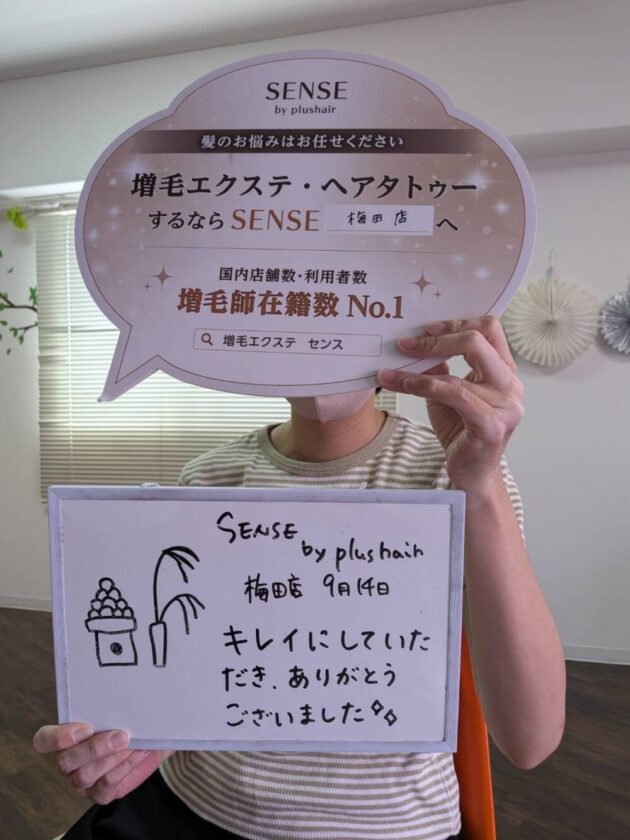 SENSE
by plushair
髪のお悩みはお任せください
増毛エクステ・ヘアタトゥー
するなら SENSE 梅田店 へ
国内店舗数・利用者数
増毛師在籍数 No.1
増毛エクステ センス
SENSE
by plushair
梅田店 9月14日
キレイにしていた
だき、ありがとう
ございました